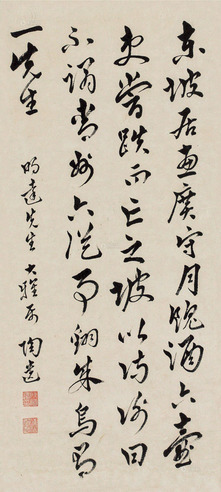 東坡居惠廣守月餽酒六壺
吏嘗跌而亡之坡以詩謝曰
不謂青州六從事翻成烏有
一先生
明達先生大雅屬 陶